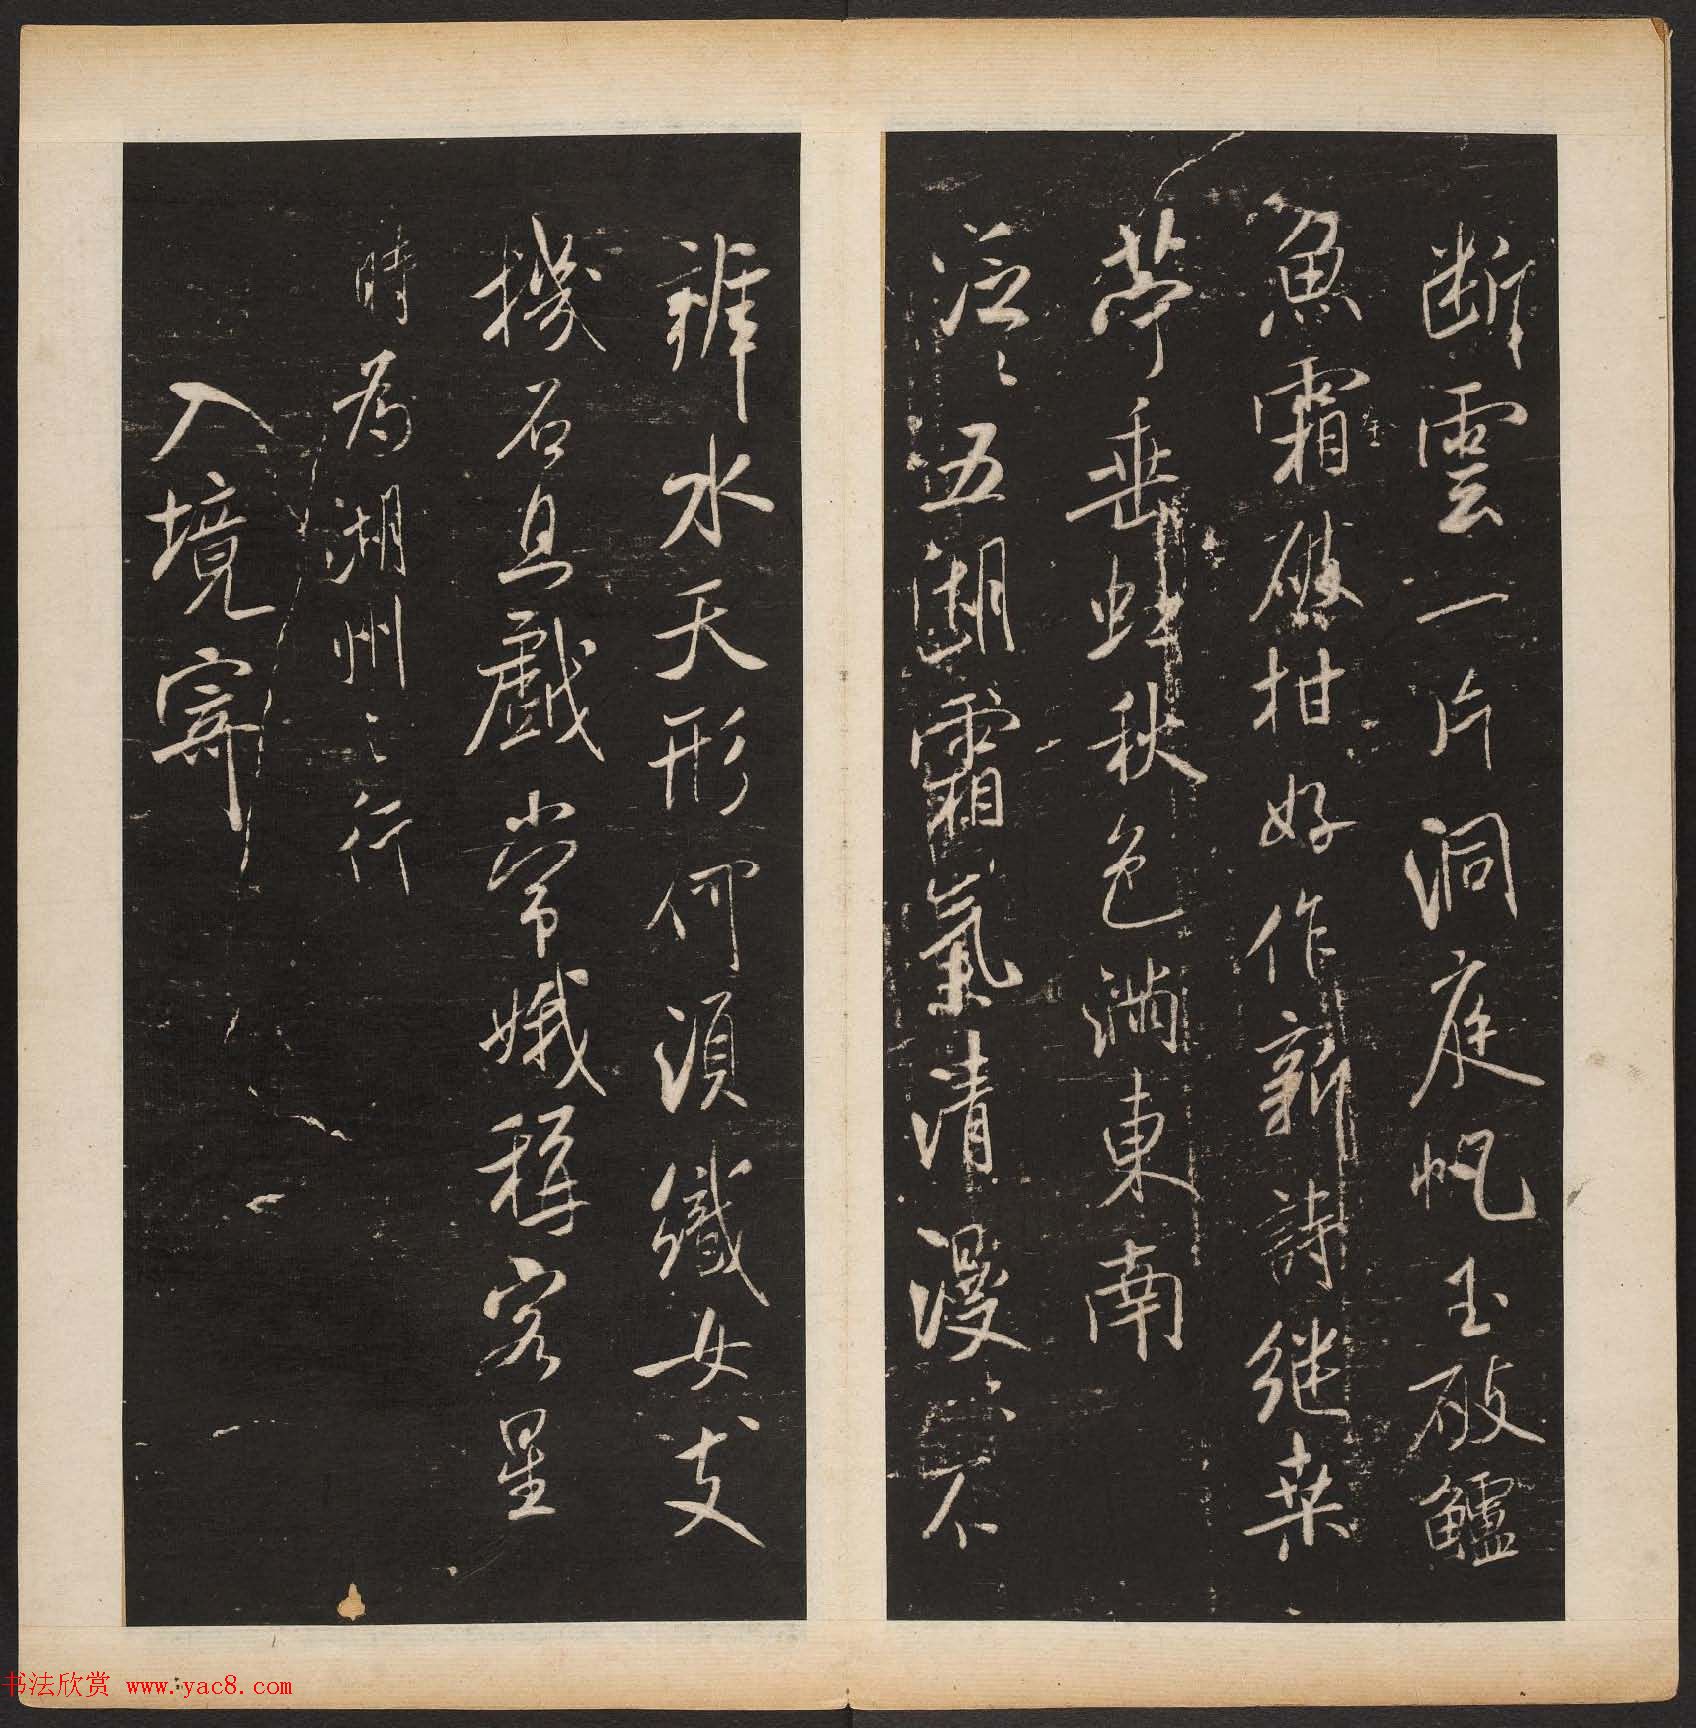 断雲一片洞庭帆玉破鱸
魚霜破柑好作新詩繼桑
苧垂虹秋色満東南
泛〻五湖霜氣清漫〻不
辨水天形何須織女支
機石且戲常娥稱客星
時為湖州之行
入境寄
金
书法欣赏 www.yac8.com